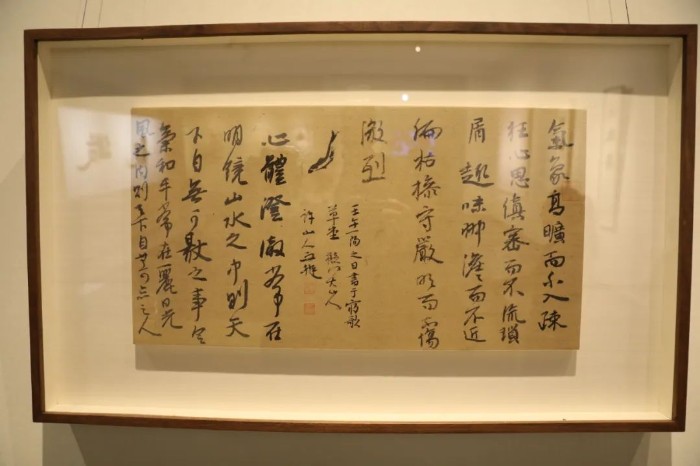 氣象高曠而不入疎
狂心思縝密而不流瑣
屑趣味沖澹而不近
偏枯操守嚴明而傷
激烈
壬午一陽之日書于
草堂
山人
心體澄澈常在
明鏡止水之中則天
下自無可厭之事意
氣和平常在麗日光
風之內則天下自無可惡之人